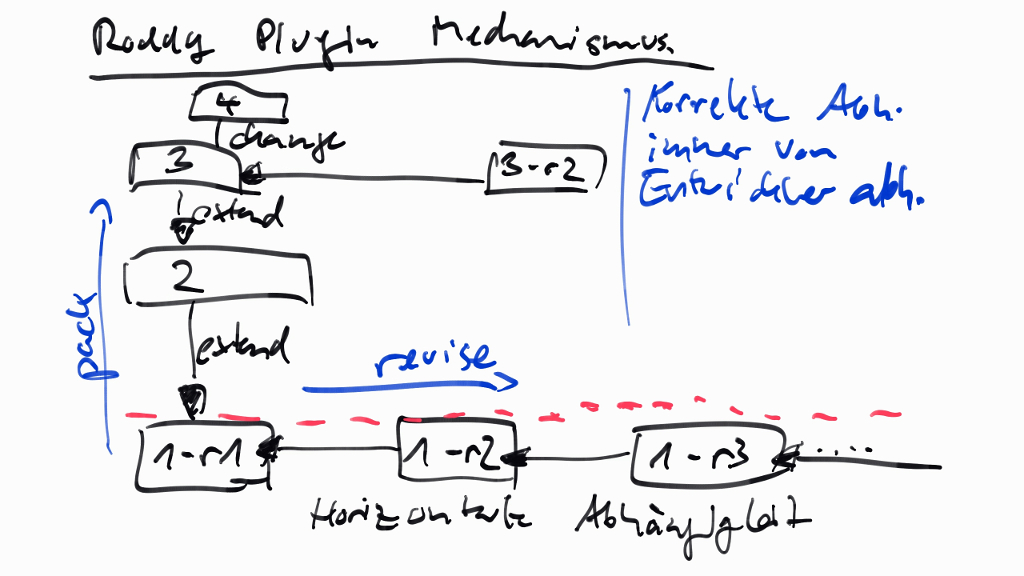 Roddy Plugin Mechanismus.
4
change
3
3-r2
extend
2
extend
pack
revise
1-r1
1-r2
1-r3
....
Horizontale Abhängigkeit
Korrekte Abh.
immer von
Entwickler abh.